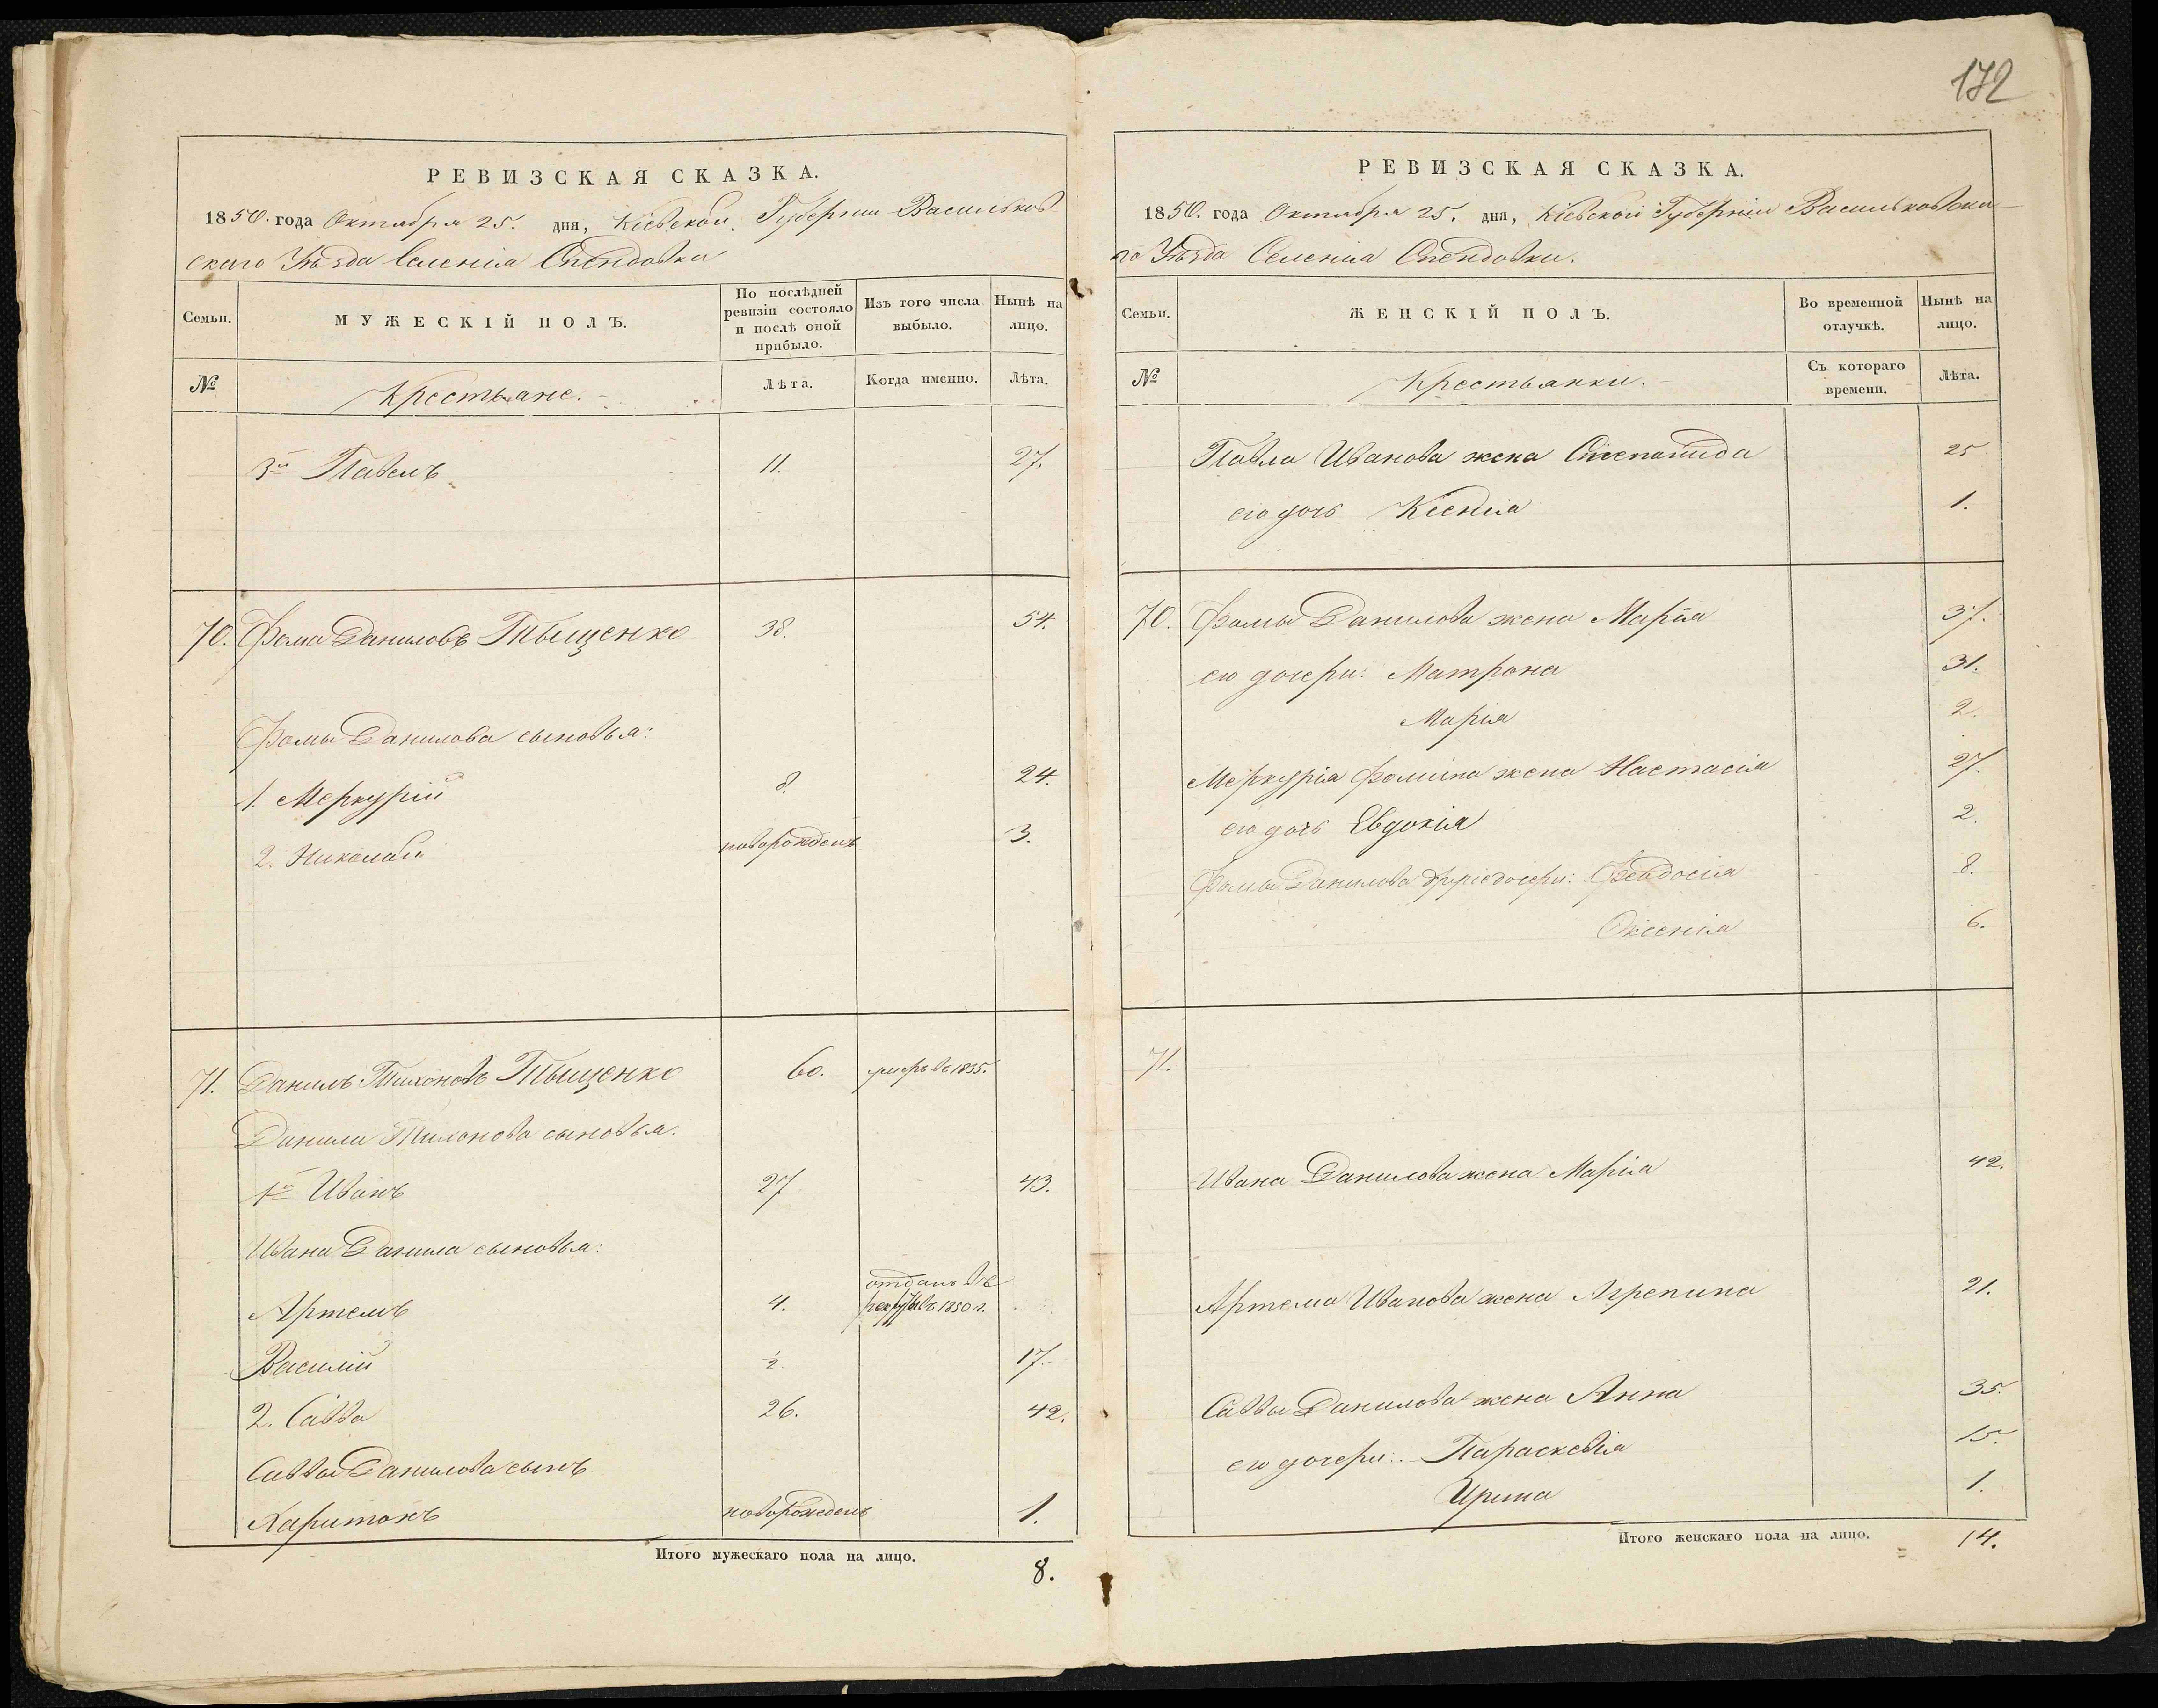 172
РЕВИЗСКАЯ СКАЗКА.
1850. года Октября 25. дня, Кіевской Губерніи Васильков-
скаго Уѣзда Селенія Спендовки
Семьи.
МУЖЕСКІЙ ПОЛЪ.
По послѣдней ревизіи состояло и послѣ оной прибыло.
Изъ того числа выбыло.
Нынѣ на лицо.
№
Крестьяне.
Лѣта.
Когда именно.
Лѣта.
3й Павелъ 11. 27.
70. Фома Даниловъ Тыщенко 38. 54.
Фомы Данилова сыновья:
1. Меркурій 8. 24.
2. Николай новорожденъ 3.
71. Данилъ Тихоновъ Тыщенко 60. умеръ въ 1835.
Данила Тихонова сыновья.
1й Иванъ 27 43.
Ивана Данила сыновья:
Артемъ 4. отданъ въ рекруты въ 1850 г.
Василій ½ 17.
2. Савва 26. 42.
Саввы Данилова сынъ
Харитонъ новорожденъ 1.
Итого мужескаго пола на лицо. 8.
РЕВИЗСКАЯ СКАЗКА.
1850. года Октября 25. дня, Кіевской Губерніи Васильковска-
го Уѣзда Селенія Спендовки.
Семьи.
ЖЕНСКІЙ ПОЛЪ.
Во временной отлучкѣ.
Нынѣ на лицо.
№
Крестьянки.
Съ котораго времени.
Лѣта.
Павла Иванова жена Степанида 25
его дочь Ксенія 1.
70. Фомы Данилова жена Марія 37.
его дочери: Матрона 31.
Марія 2.
Меркурія Фомина жена Настасія 27.
его дочь Евдокія 2.
Фомы Данилова другіе дочери: Феодосія 8.
Оксенія 6.
71.
Ивана Данилова жена Марія 42.
Артема Иванова жена Агрепина 21.
Саввы Данилова жена Анна 35.
его дочери: Параскевія 15.
Ирина 1.
Итого женскаго пола на лицо. 14.